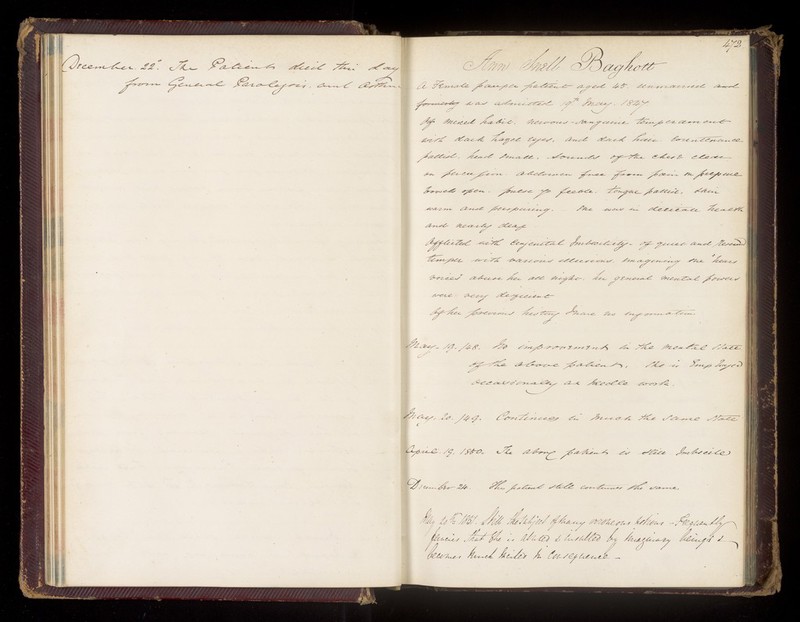 December 22d. The Patient died this day
from General Paralysis and
473
Ann Snell Baghott
A Female pauper patient aged unmarried and
was admitted May 1847
Of mixed habit. nervous-sanguine temperament
with dark hazel eyes, and dark hair countenance
pallid. head small. sounds of the chest clear
on abdomen free from pain on pressure
bowels open. pulse 70 feeble. tongue pallid. skin
warm and perspiring. She was in delicate health
and nearly deaf
Afflicted with Congenital Imbecility. of quiet and
temper with various illusions imagining she "hears
voices" abuse her all night. her general mental powers
were very deficient
Of her previous history I have no information
May. 19. /48. No improvement in the mental state
of the above patient. She is Employed
occasionally at needle work.
May. 20. /49. Continues in much the same State
April 19. 1850. The above patient is still Imbecile
December 24. The patient still continues the same
May 20th 1851. Still the subject of many erroneous notions - Frequently
fancies that she is abused & insulted by imaginary beings &
becomes much excited in consequence. -